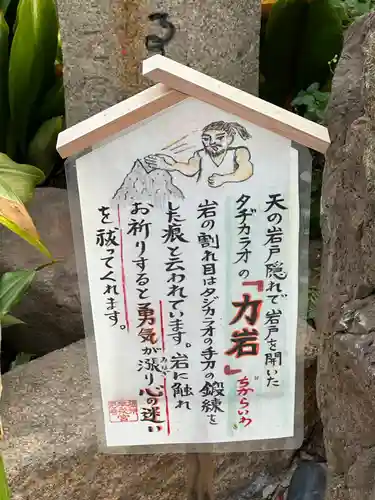 天の岩戸隠れで岩戸を開いた
タヂカラオの「力岩」
ちからいわ
岩の割れ目はタジカラオの手刀の鍛練を
した痕と云われています。岩に触れ
お祈りすると勇気が漲り心の迷い
みなぎ
を祓ってくれます。